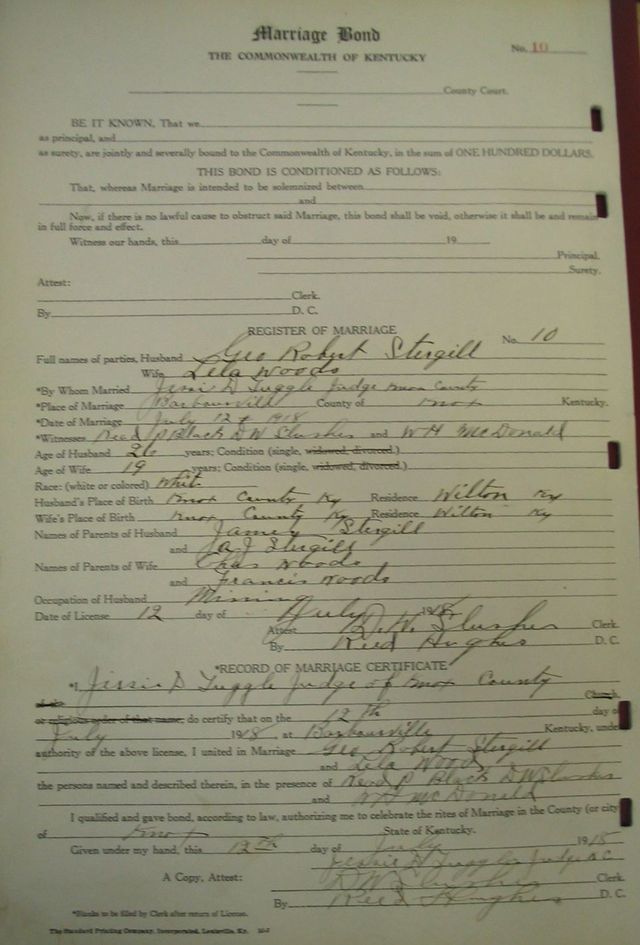 Marriage Bond
THE COMMONWEALTH OF KENTUCKY
No. 10
County Court.
BE IT KNOWN, That we
as principal, and
as surety, are jointly and severally bound to the Commonwealth of Kentucky, in the sum of ONE HUNDRED DOLLARS.
THIS BOND IS CONDITIONED AS FOLLOWS:
That, whereas Marriage is intended to be solemnized between
and
Now, if there is no lawful cause to obstruct said Marriage, this bond shall be void, otherwise it shall be and remain
in full force and effect.
Witness our hands, this day of 19
Principal.
Surety.
Attest:
Clerk.
By D. C.
REGISTER OF MARRIAGE No. 10
Full names of parties, Husband Geo Robert Stergill
Wife Lela Woods
*By Whom Married Jessie D Tuggle Judge Knox County
*Place of Marriage Barbourville County of Knox Kentucky.
*Date of Marriage July 12 1918
*Witnesses Read P Black D W Slusher and W H McDonald
Age of Husband 26 years; Condition (single, widowed, divorced.)
Age of Wife 19 years; Condition (single, widowed, divorced.)
Race: (white or colored) Whit
Husband's Place of Birth Knox County Ky Residence Wilton Ky
Wife's Place of Birth Knox County Ky Residence Wilton Ky
Names of Parents of Husband James Stergill
and A J Stergill
Names of Parents of Wife Chas Woods
and Francis Woods
Occupation of Husband Mining
Date of License 12 day of July 1918
Attest D. W. Slusher Clerk.
By Reed Hughes D. C.
*RECORD OF MARRIAGE CERTIFICATE
*I Jessie D Tuggle Judge of Knox County
Church,
or religious order of that name, do certify that on the 12th day of
July 1918, at Barbourville Kentucky, under
authority of the above license, I united in Marriage Geo Robert Stergill
and Lela Woods
the persons named and described therein, in the presence of Read P Black D W Slusher
and W H McDonald
I qualified and gave bond, according to law, authorizing me to celebrate the rites of Marriage in the County (or city)
of Knox State of Kentucky.
Given under my hand, this 12th day of July 1918
Jessie D Tuggle Judge K.C.
A Copy, Attest: D W Slusher Clerk.
By Reed Hughes D. C.
*Blanks to be filed by Clerk after return of License.
The Standard Printing Company, Incorporated, Louisville, Ky.